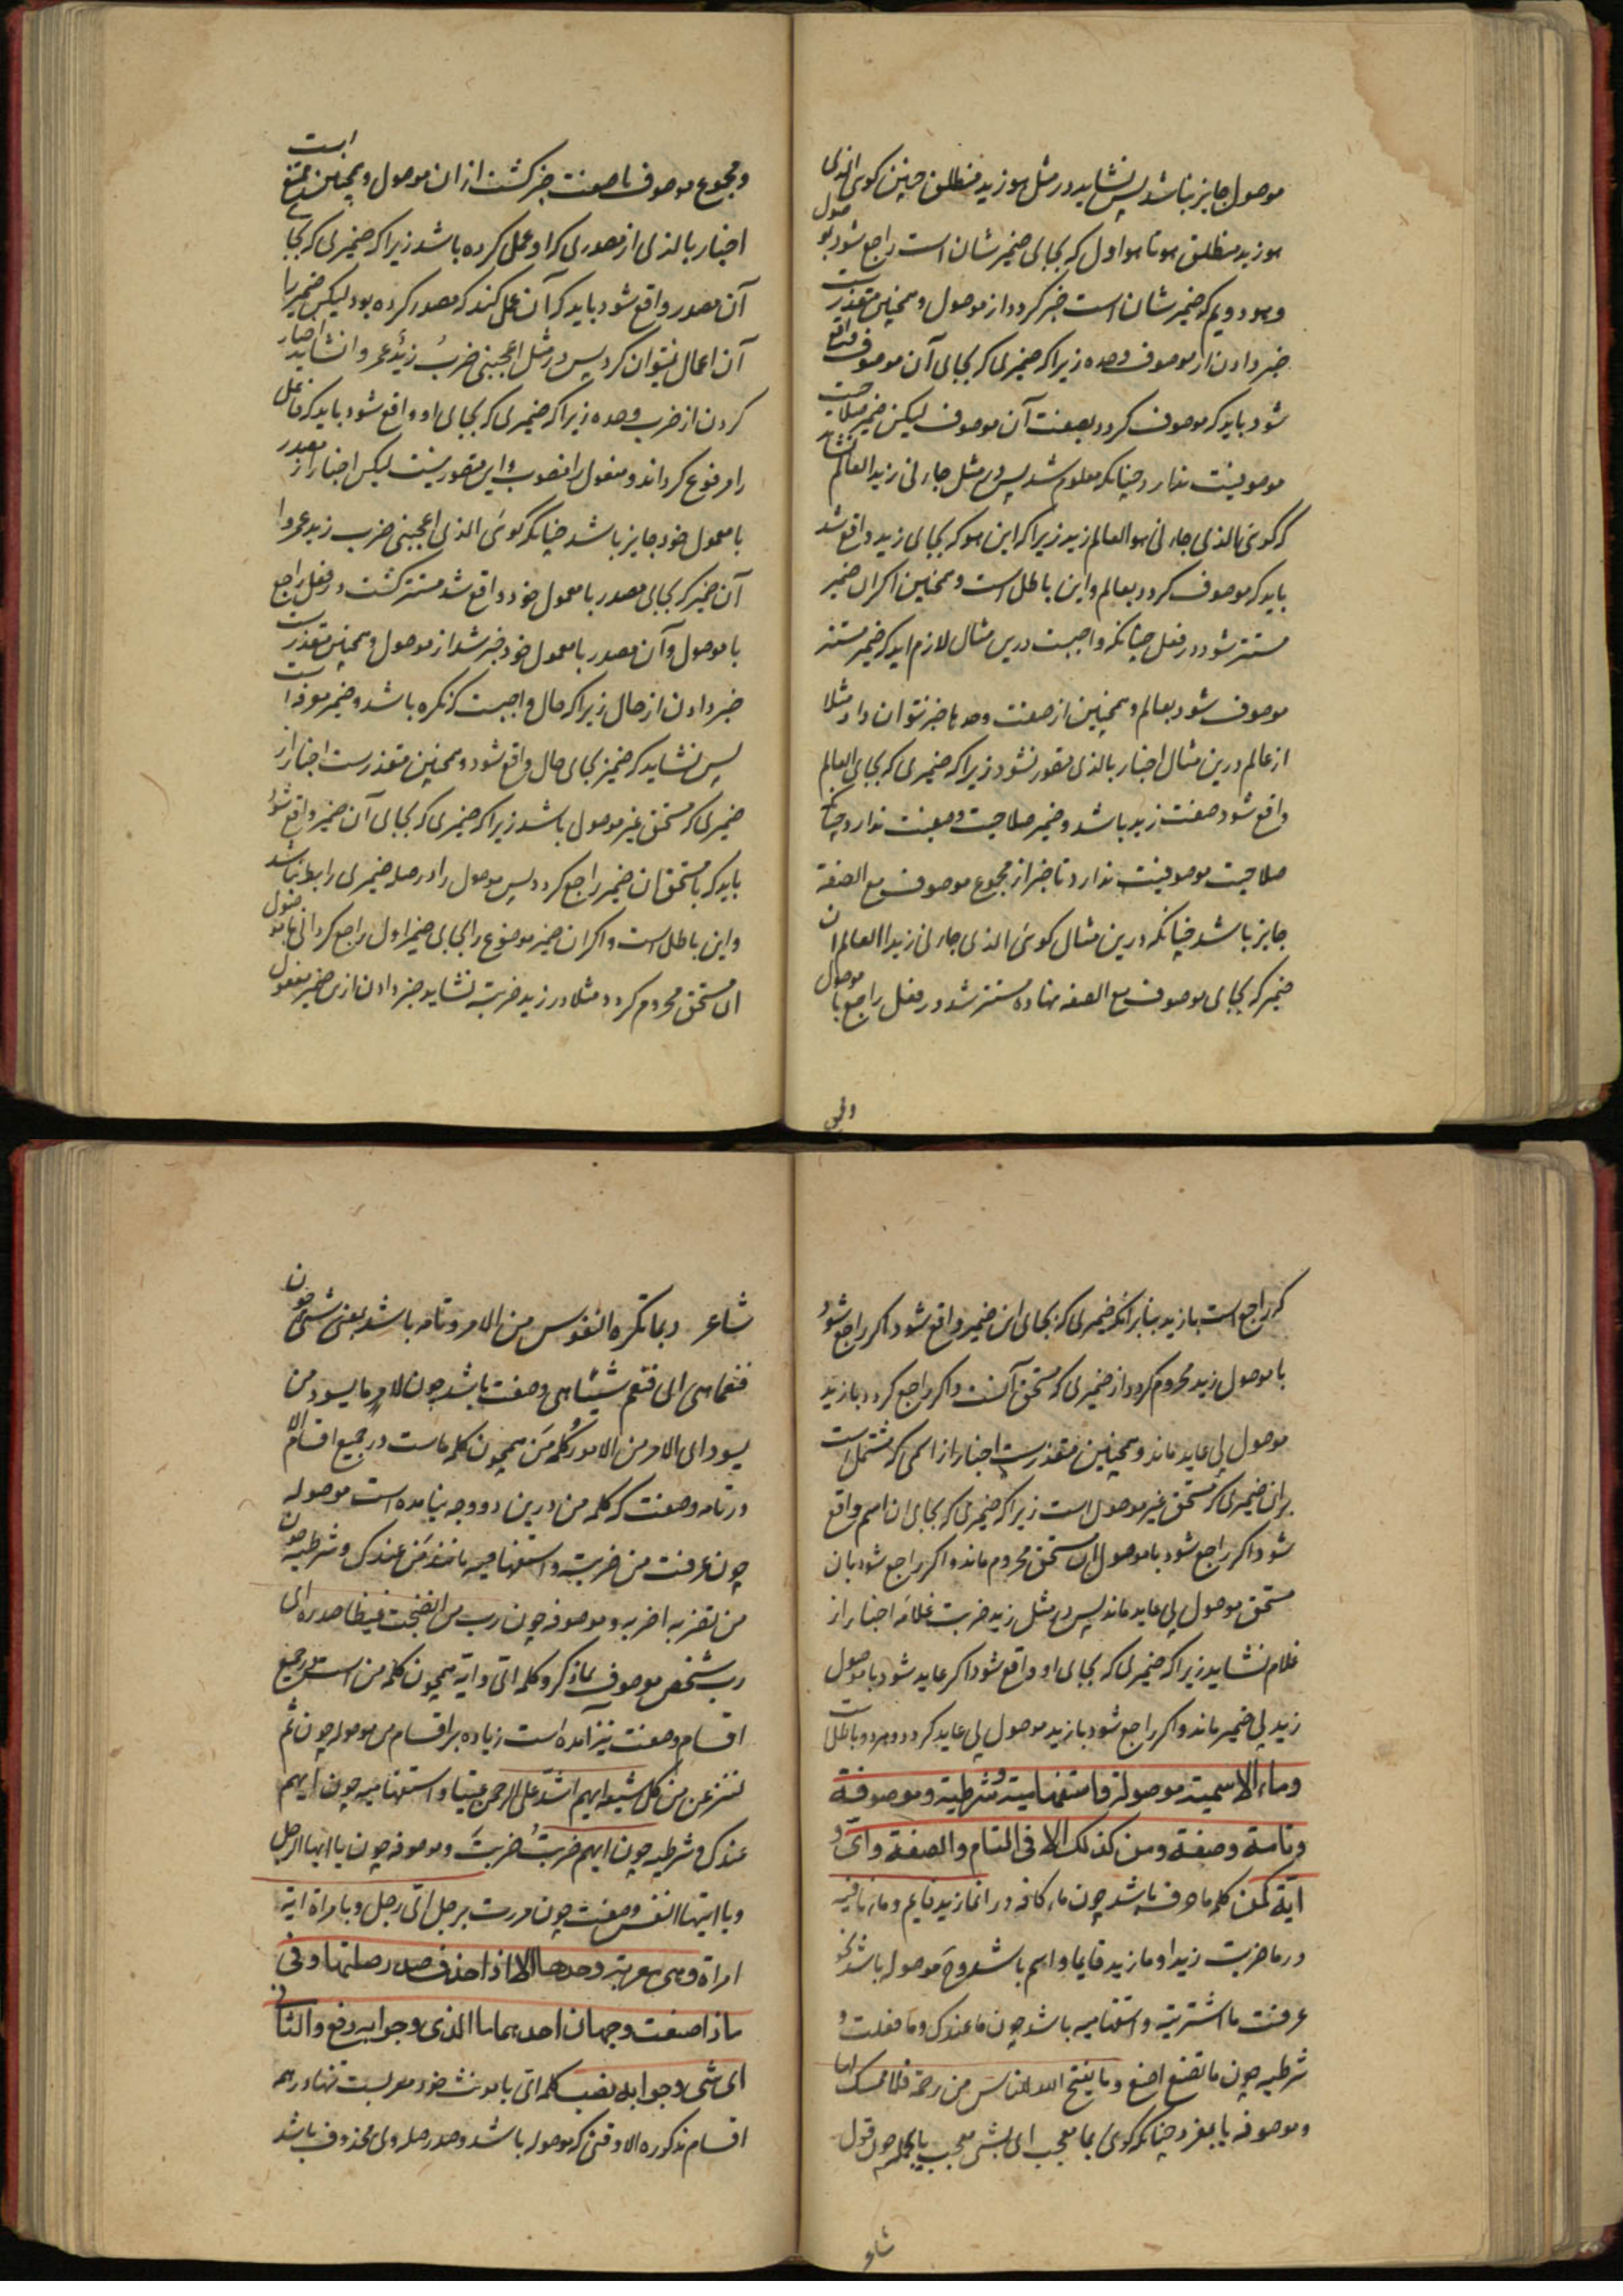 موصول جایز نباشد پس نشاید در مثل هو زید منطلق چنین کوی الذی
هو زید منطلق هو تا هو اول که بجای ضمیر شان است راجع شود بموصول
و هو دویم که ضمیر شان است خبر کردد از موصول و همچنین متعذرست
خبر دادن از موصوف وحده زیرا که ضمیری که بجای آن موصوف واقع
شود باید که موصوف کردد بصفت آن موصوف لیکن ضمیر صلاحیت
موصوفیت ندارد چنانکه معلوم شد پس در مثل جاءنی زید العالم نشاید
که کوئی الذی جاءنی هو العالم زید زیرا که این هو که بجای زید واقع شد
باید که موصوف کردد بعالم و این باطل است و همچنین اکر ان ضمیر
مستتر شود در فعل چنانکه واجبت درین مثال لازم اید که ضمیر مستتر
موصوف شود بعالم و همچنین از صفت وحدها خبر نتوان داد مثلا
از عالم درین مثال اخبار بالذی متصور نشود زیرا که ضمیری که بجای العالم
واقع شود صفت زید باشد و ضمیر صلاحیت وصفیت ندارد چنانکه
صلاحیت موصوفیت ندارد تا خبر از مجموع موصوف مع الصفة
جایز باشد چنانکه درین مثال کوئی الذی جاءنی زید العالم ان
ضمیر که بجای موصوف مع الصفه نهاده مستتر شد در فعل راجع با موصول
و مجموع موصوف با صفت خبر کشت از ان موصول و همچنین ممتنع است
اخبار بالذی از مصدری که او عمل کرده باشد زیرا که ضمیری که بجای
آن مصدر واقع شود باید که آن عمل کند که مصدر کرده بود لیکن ضمیر را
آن اعمال نتوان کرد پس در مثل اعجبنی ضرب زید عمروا نشاید اخبار
کردن از ضرب وحده زیرا که ضمیری که بجای او واقع شود باید که فاعل
را مرفوع کرداند و مفعول را منصوب و این متصور نیست لیکن اخبار از مصدر
با معمول خود جایز باشد چنانکه کوئی الذی اعجبنی ضرب زید عمروا
آن ضمیر که بجای مصدر با معمول خود واقع شد مستتر کشت در فعل راجع
با موصول و آن مصدر با معمول خود خبر شد از موصول و همچنین متعذرست
خبر دادن از حال زیرا که حال واجبست که نکره باشد و ضمیر معرفه است
پس نشاید که ضمیر بجای حال واقع شود و همچنین متعذرست اخبار از
ضمیری که مستحق غیر موصول باشد زیرا که ضمیری که بجای آن ضمیر واقع شود
باید که با مستحق ان ضمیر راجع کردد پس موصول را در صله ضمیری رابط نباشد
و این باطل است و اکر ان ضمیر موضوع را بجای ضمیر اول راجع کردانی با موصول
ان مستحق محروم کردد مثلا در زید ضربته نشاید خبر دادن ازین ضمیر مفعول
که راجع است با زید بنابر انکه ضمیری که بجای این ضمیر واقع شود اکر راجع شود
با موصول زید محروم کردد از ضمیری که مستحق آنست و اکر راجع کردد با زید
موصول بی عاید ماند و همچنین متعذرست اخبار از اسمی که مشتمل است
بران ضمیری که مستحق غیر موصول است زیرا که ضمیری که بجای ان اسم واقع
شود اکر راجع شود با موصول ان مستحق محروم ماند و اکر راجع شود بان
مستحق موصول بی عاید ماند پس در مثل زید ضربت غلامه اخبار از
غلام نشاید زیرا که ضمیری که بجای او واقع شود اکر عاید شود با موصول
زید بی ضمیر ماند و اکر راجع شود با زید موصول بی عاید کردد و هر دو باطل است
وما الاسمیة موصولة واستفهامیة وشرطیة وموصوفة
وتامة وصفة ومن کذلک الا فی التام والصفة وای و
ایة کمن کلمه ما حرف باشد چون ماء کافه در انما زید قایم و ماء نافیه
در ما ضربت زیدا و ما زید قایما و اسم باشد و ح موصوله باشد نحو
عرفت ما اشتریته و استفهامیه باشد چون ما عندک و ما فعلت و
شرطیه چون ما تصنع اصنع و ما یفتح الله للناس من رحمة فلا ممسک لها
و موصوفه یا بمفرد چنانکه کوئی بما معجب ای بشئ معجب یا بجمله چون قول
شاعر ربما تکره النفوس من الامر و تامه باشد بمعنی شئ چون
فنعما هی ای فنعم شیئا هی و صفت باشد چون لامر ما یسود من
یسود ای الامر من الامور کلمه من همچون کلمه ماست در جمیع اقسام الا
در تامه و صفت که کلمه من درین دو وجه نیامده است موصوله
چون عرفت من ضربته و استفهامیه مانند من عندک و شرطیه چون
من تضربه اضربه و موصوفه چون رب من انضجت غیظا صدره ای
رب شخص موصوف بما ذکر و کلمه ای و ایة همچون کلمه من است در جمیع
اقسام و صفت نیز آمده است زیاده بر اقسام من موصوله چون ثم
لننزعن من کل شیعة ایهم اشد علی الرحمن عتیا و استفهامیه چون ایهم
عندک و شرطیه چون ایهم ضربت ضربت و موصوفه چون یا ایها الرجل
و یا ایتها النفس و صفت چون مررت برجل ای رجل و بامراة ایة
امراة وهی معربة وحدها الا اذا حذف صدر صلتها وفی
ماذا صنعت وجهان احدهما ما الذی وجوابه رفع والثانی
ای شئ وجوابه نصب کلمه ای با مونث خود معربست تنها در همه
اقسام مذکوره الا وقتی که موصوله باشد و صدر صله وی محذوف باشد